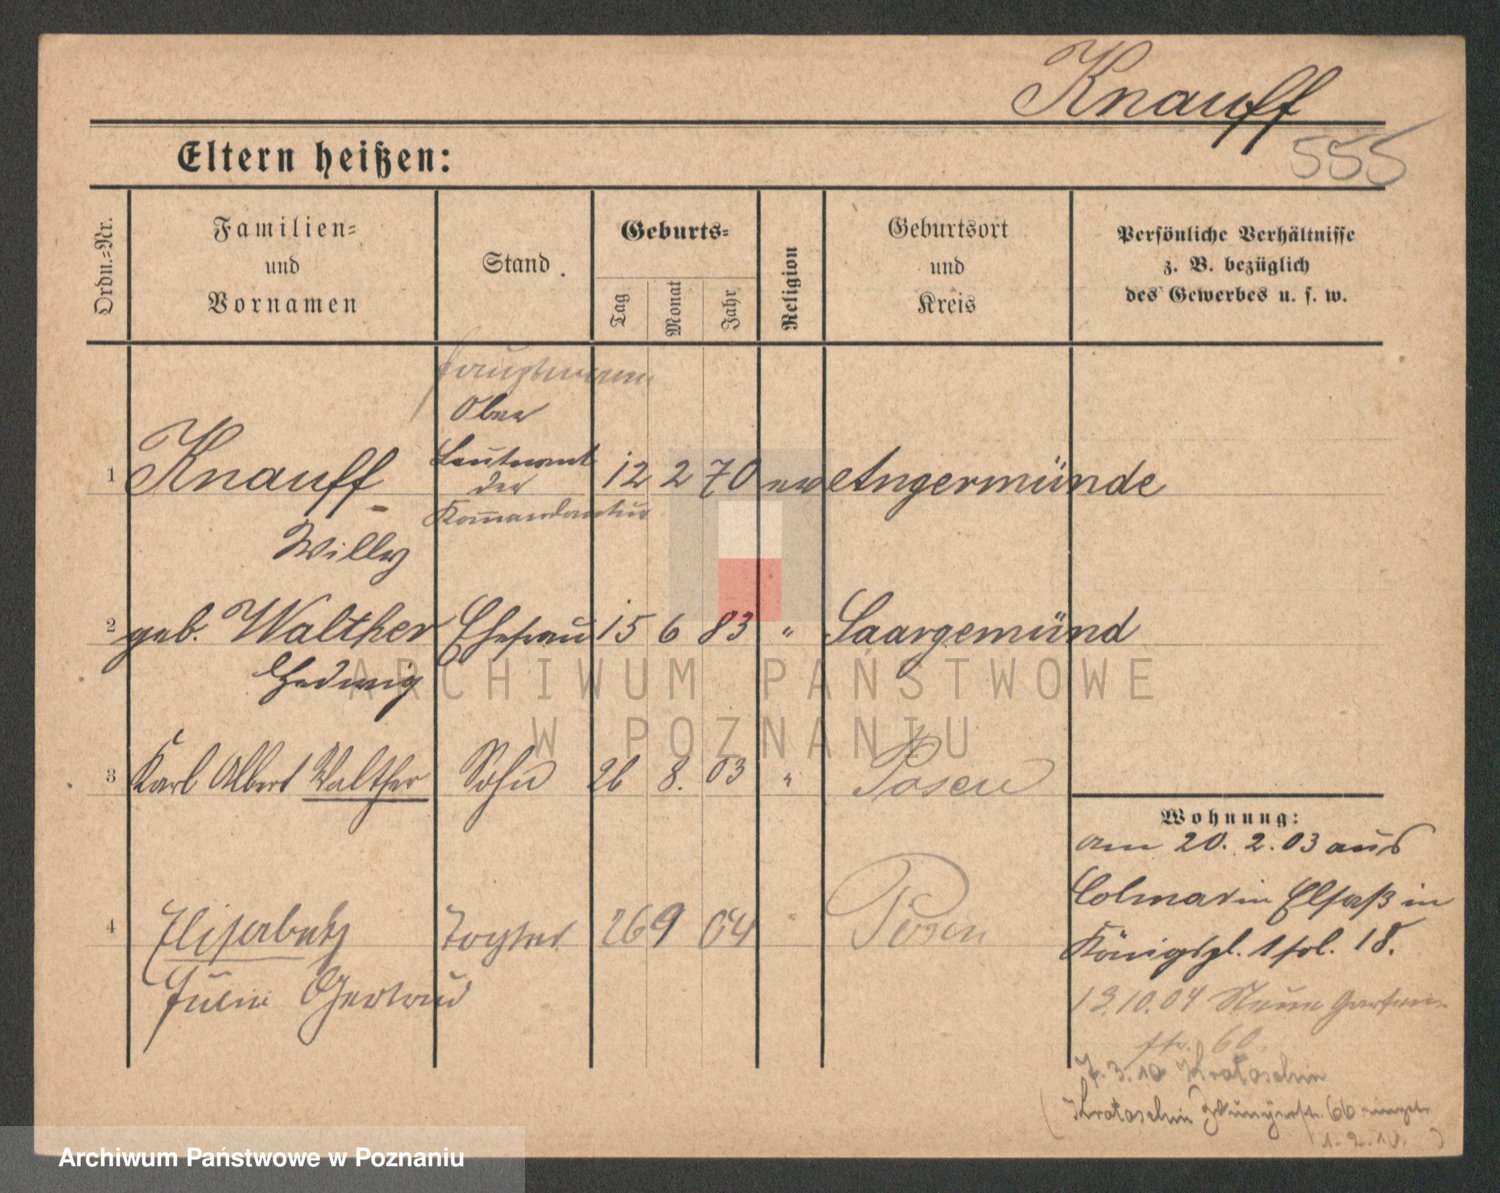 Knauff
555
Eltern heißen:
Ordn.=Nr.
Familien=
und
Vornamen
Stand.
Geburts=
Tag
Monat
Jahr
Religion
Geburtsort
und
Kreis
Persönliche Verhältnisse
z. B. bezüglich
des Gewerbes u. s. w.
Hauptmann
Ober
1 Knauff Leutnant 12 2 70 ev Angermünde
der
Komandantur
Willy
2 geb. Walther Ehefrau 15 6 83 " Saargemünd
Hedwig
ARCHIWUM PAŃSTWOWE
W POZNANIU
3 Karl Albert Walther Sohn 26 8. 03 " Posen
Wohnung:
am 20. 2. 03 aus
Colmar in Elsaß in
4 Elisabeth Tochter 26 9 04 " Posen
Königspl. 1 fol. 18.
Gertrud
13.10.04 Neue Garten-
str. 60
7. 3. 10 Krotoschin
(Krotoschin 66
1. 2. 10. )
Archiwum Państwowe w Poznaniu